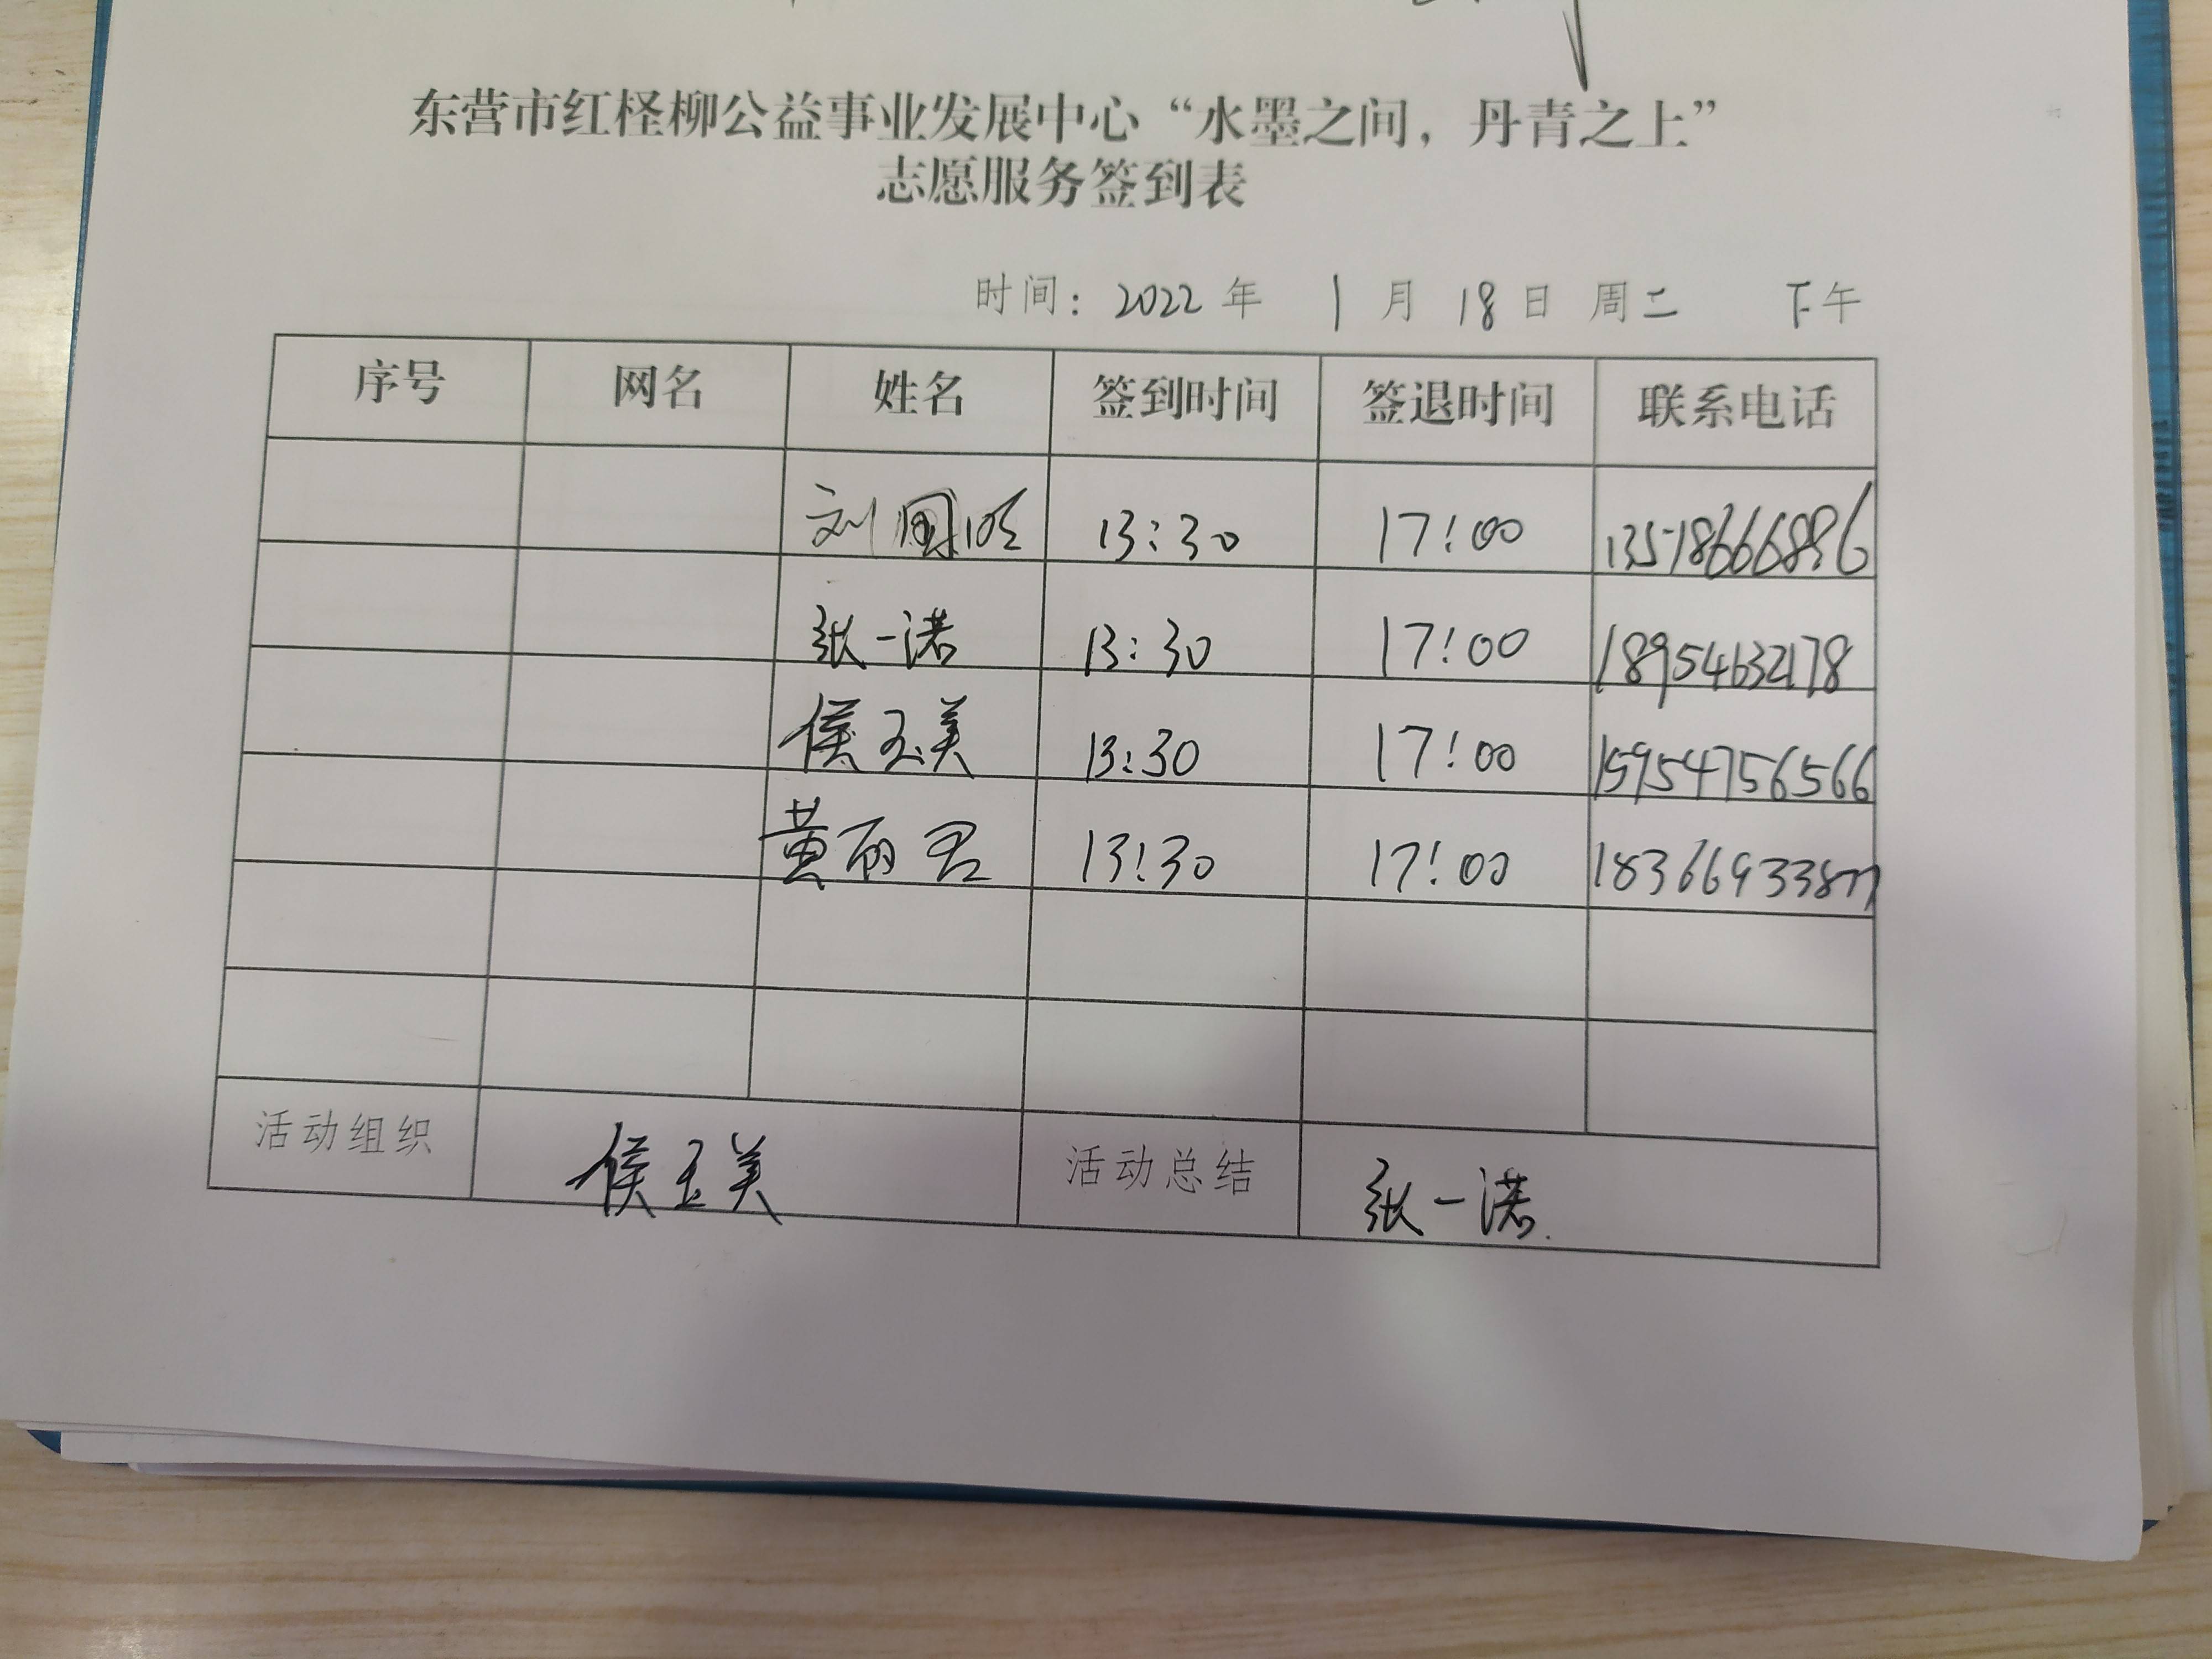 东营市红柽柳公益事业发展中心“水墨之间，丹青之上”
志愿服务签到表
时间：2022年 1月18日 周二 下午
序号 网名 姓名 签到时间 签退时间 联系电话
刘国 13:30 17:00 13518666886
张一诺 13:30 17:00 18954632178
侯玉美 13:30 17:00 15954756566
黄丽君 13:30 17:00
活动组织 侯玉美 活动总结 张一诺